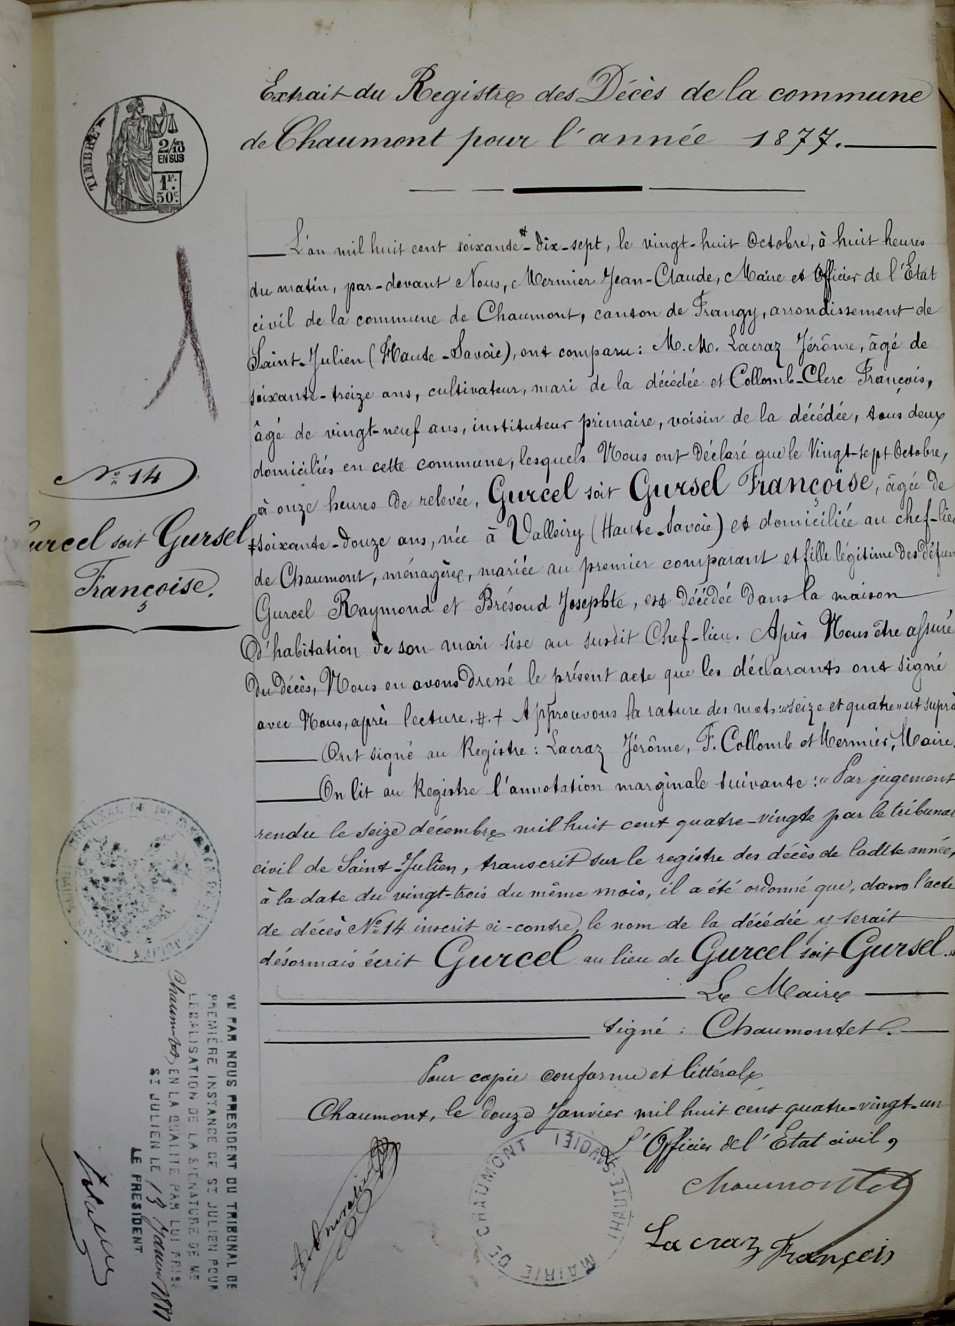 Extrait du Registre des Décès de la commune
de Chaumont pour l'année 1877.
TIMBRE
2/10
EN SUS
1F.
50c
L'an mil huit cent soixante-dix-sept, le vingt-huit Octobre, à huit heures
du matin, par-devant Nous, Mermier Jean-Claude, Maire et Officier de l'État
civil de la commune de Chaumont, canton de Frangy, arrondissement de
Saint-Julien (Haute-Savoie), ont comparu: M.M. Lacraz Jérôme, âgé de
soixante-treize ans, cultivateur, mari de la décédée et Collomb-Clerc François,
âgé de vingt-neuf ans, instituteur primaire, voisin de la décédée, tous deux
domiciliés en cette commune, lesquels Nous ont déclaré que le Vingt-sept Octobre,
à onze heures de relevée, Gurcel soit Gursel Françoise, âgée de
soixante-douze ans, née à Valleiry (Haute-Savoie) et domiciliée au chef-lieu
de Chaumont, ménagère, mariée au premier comparant et fille légitime des défun
Gurcel Raymond et Brésoud Josephte, est décédée dans la maison
d'habitation de son mari sise au susdit Chef-lieu. Après Nous être assuré
du décès, Nous en avons dressé le présent acte que les déclarants ont signé
avec Nous, après lecture. ‡.+ Approuvons la rature des mots "seize et quatre" ut suprà
Ont signé au Registre: Lacraz Jérôme, F. Collomb et Mermier, Maire.
On lit au Registre l'annotation marginale suivante: "Par jugement
rendu le seize décembre mil huit cent quatre-vingts par le tribunal
civil de Saint-Julien, transcrit sur le registre des décès de ladite année,
à la date du vingt-trois du même mois, il a été ordonné que, dans l'acte
de décès No 14 inscrit ci-contre, le nom de la décédée y serait
désormais écrit Gurcel au lieu de Gurcel soit Gursel."
Le Maire
signé: Chaumontet.
Pour copie conforme et littérale
Chaumont, le douze Janvier mil huit cent quatre-vingt-un
L'Officier de l'Etat civil,
Chaumontet
Lacraz François
MAIRIE DE CHAUMONT (HAUTE-SAVOIE)
No 14
Gurcel soit Gursel
Françoise.
VU PAR NOUS PRESIDENT DU TRIBUNAL DE
PREMIÈRE INSTANCE DE ST JULIEN POUR
LEGALISATION DE LA SIGNATURE DE ME
Chaumontet EN LA QUALITE PAR LUI PRISE
ST JULIEN LE 13 Janvier 1881
LE PRESIDENT